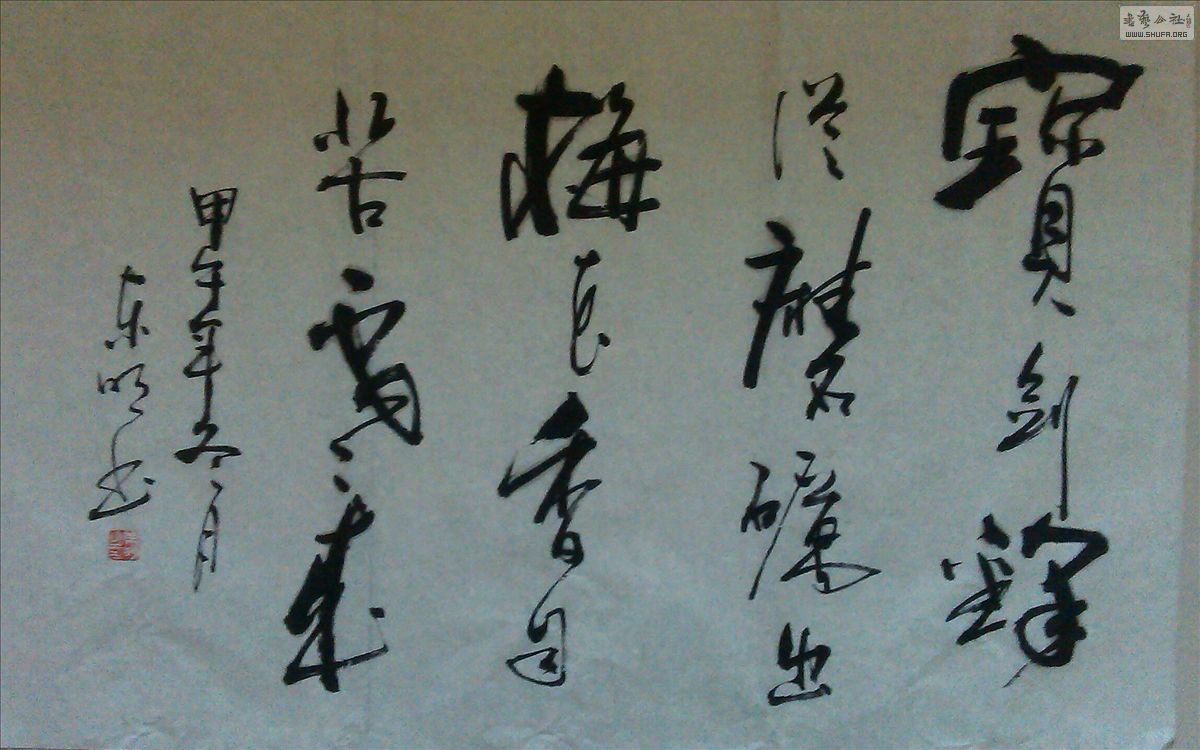 寶劍鋒
從磨礪出
梅花香自
苦寒来
甲午年冬月
东明书
書藝公社
WWW.SHUFA.ORG